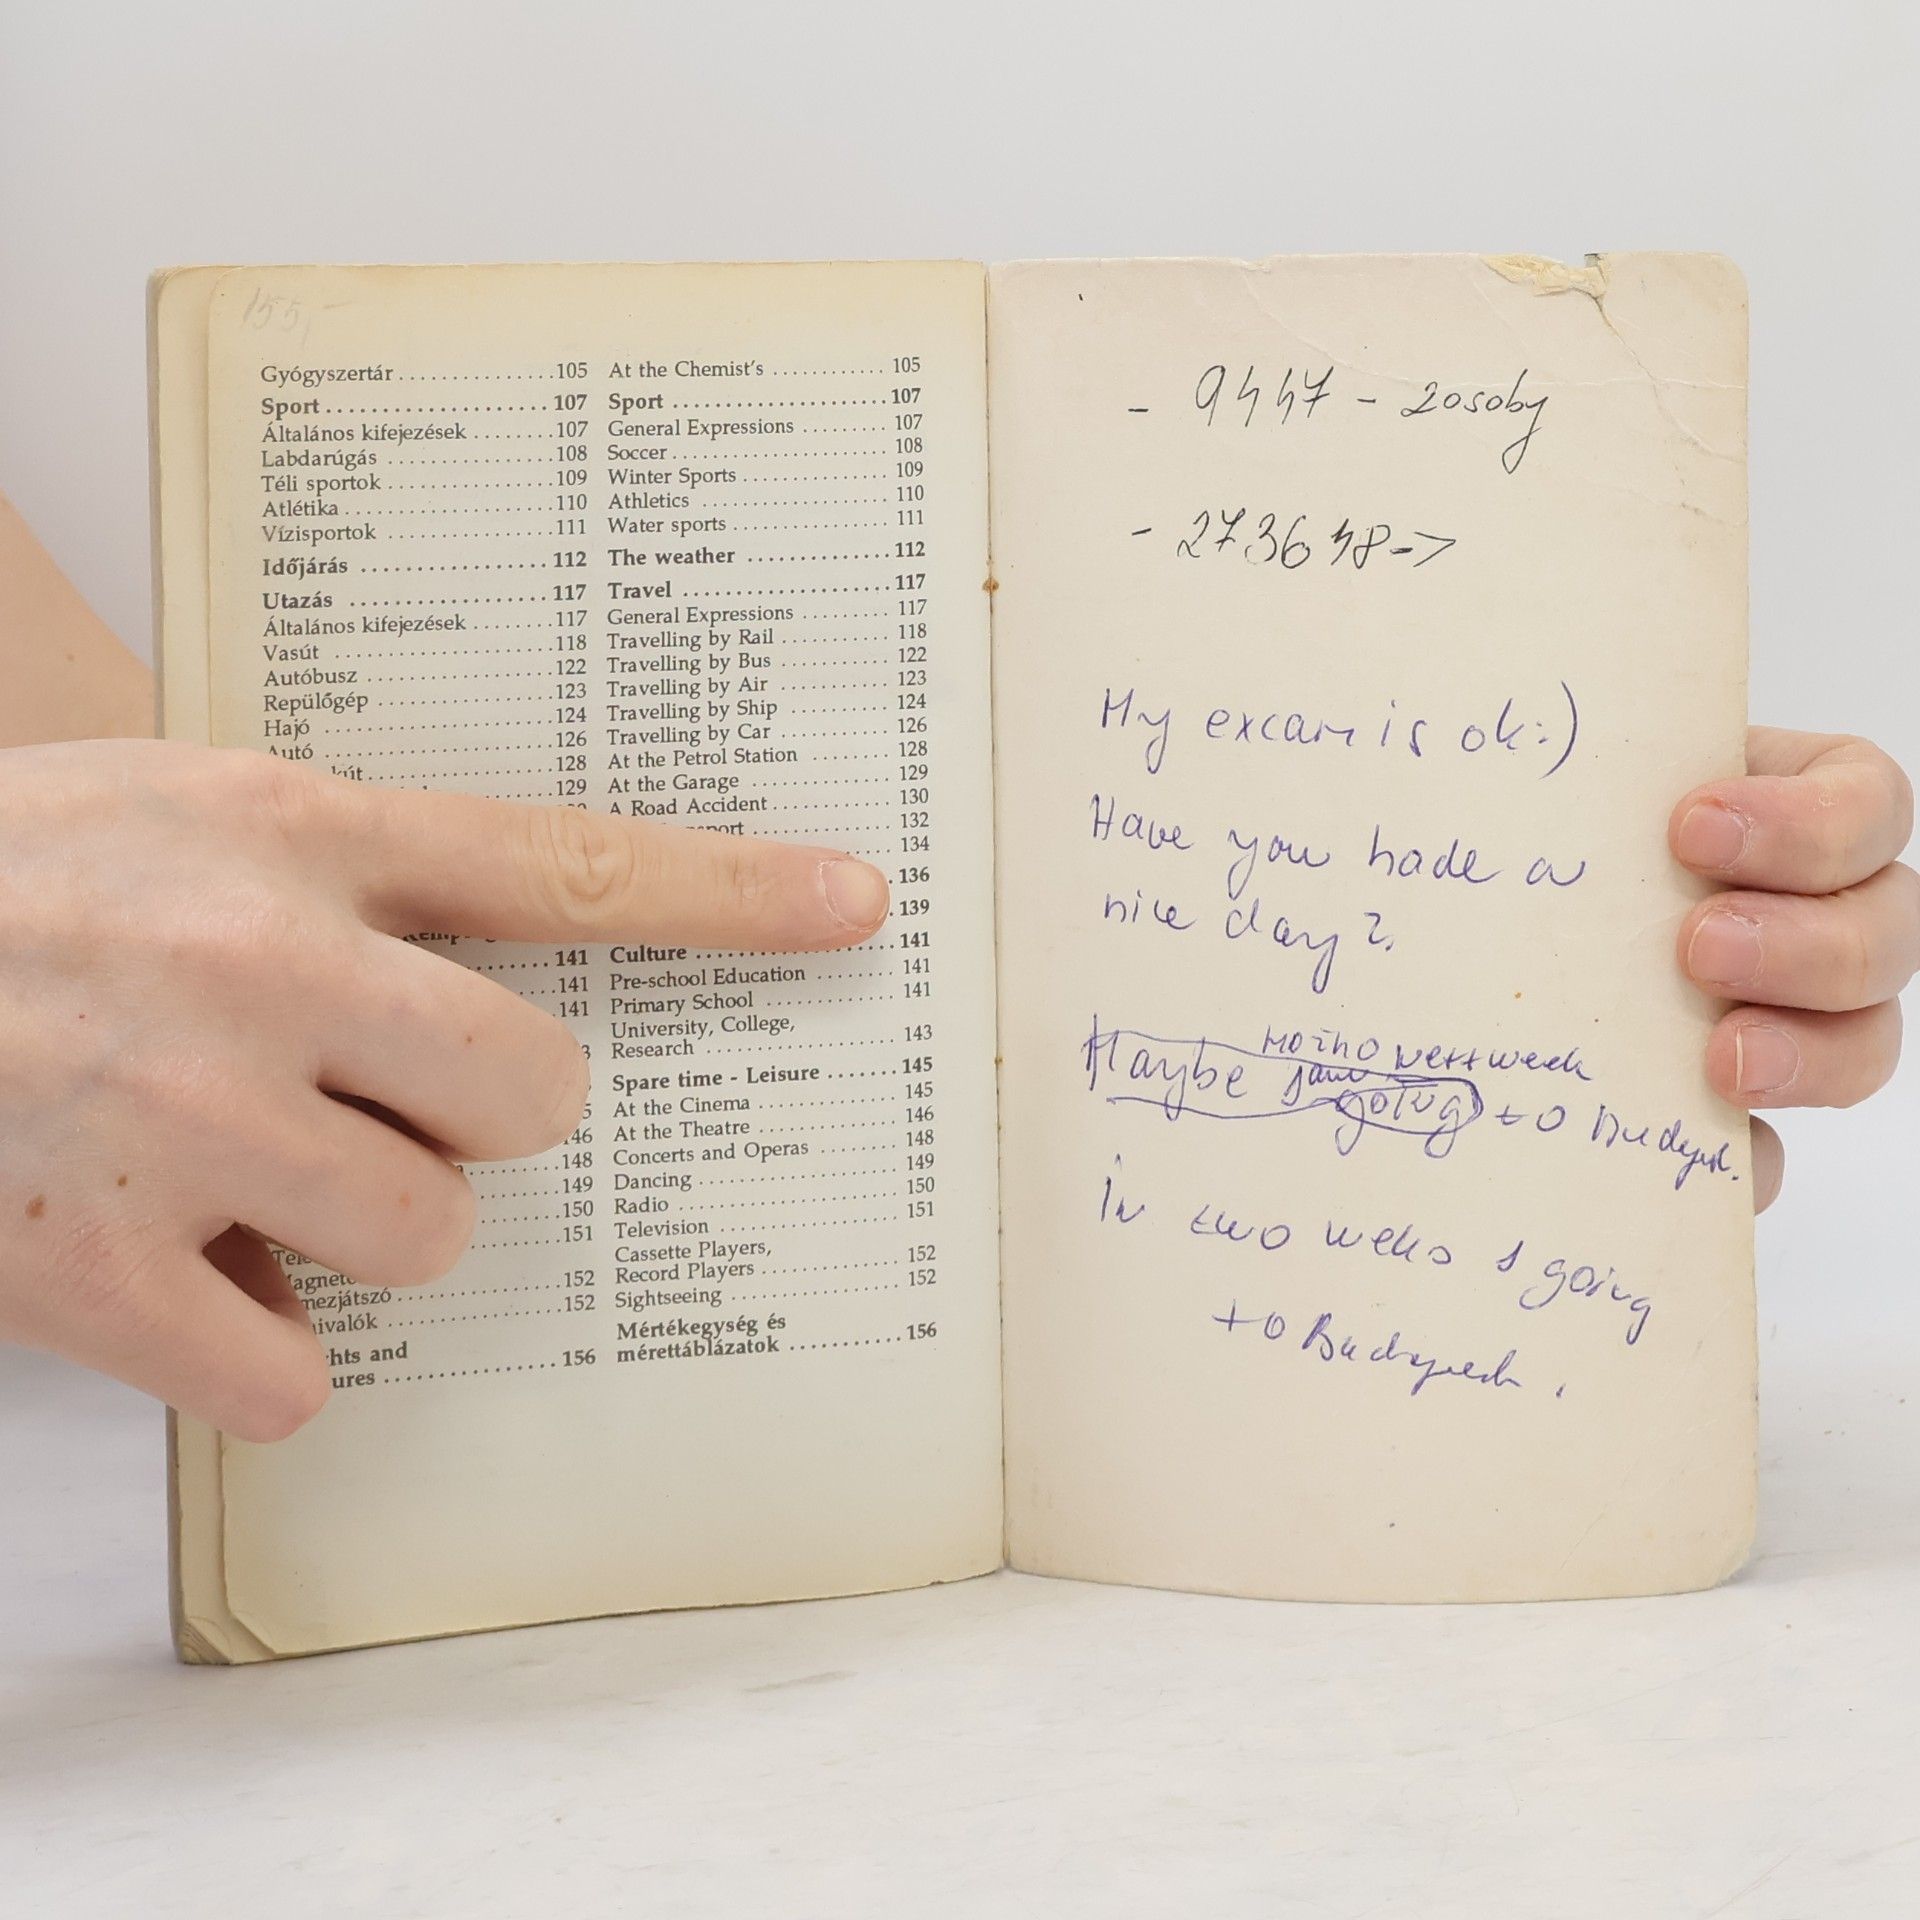 155,-
Gyógyszertár ............... 105
Sport ..................... 107
Általános kifejezések ........ 107
Labdarúgás ................ 108
Téli sportok ................ 109
Atlétika .................... 110
Vízisportok ................ 111
Időjárás .................. 112
Utazás ................... 117
Általános kifejezések ........ 117
Vasút ..................... 118
Autóbusz .................. 122
Repülőgép ................. 123
Hajó ...................... 124
Autó ...................... 126
kút ...................... 128
129
141
141
141
146
148
149
150
151
152
mezjátszó .................. 152
ivalók
hts and
ures ...................... 156
At the Chemist's ............ 105
Sport ...................... 107
General Expressions ......... 107
Soccer ...................... 108
Winter Sports ............... 109
Athletics ................... 110
Water sports ................ 111
The weather ............... 112
Travel ..................... 117
General Expressions ......... 117
Travelling by Rail ........... 118
Travelling by Bus ........... 122
Travelling by Air ........... 123
Travelling by Ship .......... 124
Travelling by Car ........... 126
At the Petrol Station ........ 128
At the Garage .............. 129
A Road Accident ............ 130
132
134
136
139
Culture .................... 141
Pre-school Education ........ 141
Primary School ............. 141
University, College,
Research ................... 143
Spare time - Leisure ....... 145
At the Cinema .............. 145
At the Theatre .............. 146
Concerts and Operas ........ 148
Dancing .................... 149
Radio ...................... 150
Television .................. 151
Cassette Players,
Record Players .............. 152
Sightseeing ................. 152
Mértékegység és
mérettáblázatok ........... 156
- 9447 - 2osoby
- 273648->
My excam is ok:)
Have you hade a
nice day?
next week
Maybe going to Budapest.
In two weeks I going
to Budapest.